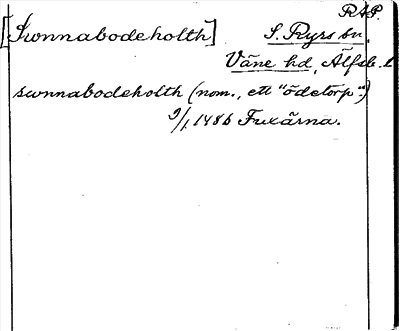 RAP.
[Swnnabodeholth] S. Ryrs sn.
Väne hd, Älfsb. l
swnnabodeholth (nom., ett "ödetorp".)
9/1 1486 Fuxärna.